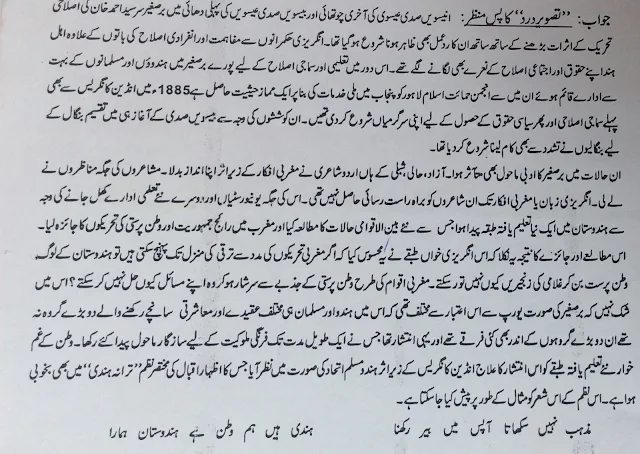 جواب: "تصویر درد" کا پس منظر: انیسویں صدی عیسوی کی آخری چوتھائی اور بیسویں صدی عیسویں کی پہلی دھائی میں برصغیر سرسید احمد خان کی اصلی
تحریک کے اثرات بڑھنے کے ساتھ ساتھ ان کا ردعمل بھی ظاہر ہونا شروع ہو گیا تھا۔ انگریزی حکمرانوں سے مفاہمت اور انفرادی اصلاح کی باتوں کے علاوہ اہل
ہند اپنے حقوق اور اجتماعی اصلاح کے نعرے بھی لگانے لگے تھے۔ اس دور میں تعلیمی اور سماجی اصلاح کے لیے پورے برصغیر میں ہندوؤں اور مسلمانوں کے بہت
سے ادارے قائم ہوئے ان میں سے انجمن حمائت اسلام لاہور کو پنجاب میں ملی خدمات کی بنا پر ایک ممتاز حیثیت حاصل ہے 1885ء میں انڈین کانگریس سے بھی
پہلے سماجی اصلاحی اور پھر سیاسی حقوق کے حصول کے لیے اپنی سرگرمیاں شروع کر دی تھیں۔ ان کوششوں کی وجہ سے بیسویں صدی کے آغاز ہی میں تقسیم بنگال کے
لیے بنگالیوں نے تشدد سے بھی کام لینا شروع کر دیا تھا۔
ان حالات میں برصغیر کا ادبی ماحول بھی متاثر ہوا۔ آزاد، حالی، شبلی کے ہاں اردو شاعری نے مغربی افکار کے زیر اثر اپنا انداز بدلا۔ مشاعروں کی جگہ مناظروں نے
لے لی۔ انگریزی زبان یا مغربی افکار تک ان شاعروں کو براہ راست رسائی حاصل نہیں تھی۔ اس کی جگہ یونیورسٹیاں اور دوسرے نئے تعلیمی ادارے کھل جانے کی وجہ
سے ہندوستان میں ایک نیا تعلیم یافتہ طبقہ پیدا ہوا جس سے نئے بین الاقوامی حالات کا مطالعہ کیا اور مغرب میں رائج جمہوریت اور وطن پرستی کی تحریکوں کا جائزہ لیا۔
اس مطالعے اور جائزے کا نتیجہ یہ نکلا کہ اس انگریزی خواں طبقے نے یہ محسوس کیا کہ اگر مغربی تحریکوں کی مدد سے ترقی کی منزل تک پہنچ سکتی ہیں تو ہندوستان کے لوگ
وطن پرست بن کر غلامی کی زنجیریں کیوں نہیں توڑ سکتے۔ مغربی اقوام کی طرح وطن پرستی کے جذبے سے سرشار ہو کر وہ اپنے مسائل کیوں حل نہیں کر سکتے؟ اس میں
شک نہیں کہ برصغیر کی صورت یورپ سے اس اعتبار سے مختلف تھی کہ اس میں ہندو اور مسلمان ہی مختلف عقیدے اور معاشرتی سانچے رکھنے والے دو بڑے گروہ نہ
تھے ان دو بڑے گروہوں کے اندر بھی کئی فرقے تھے اور یہی انتشار تھا جس نے ایک طویل مدت تک فرنگی ملوکیت کے لیے سازگار ماحول پیدا کئے رکھا۔ وطن کے غم
خوار نئے تعلیم یافتہ طبقے کو اس انتشار کا علاج انڈین کانگریس کے زیر اثر ہندو مسلم اتحاد کی صورت میں نظر آیا جس کا اظہار اقبال کی مختصر نظم "ترانہ ہندی" میں بھی بخوبی
ہوا ہے۔ اس نظم کے اس شعر کو مثال کے طور پر پیش کیا جا سکتا ہے۔
مذہب نہیں سکھاتا آپس میں بیر رکھنا ہندی ہیں ہم وطن ہے ہندوستان ہمارا